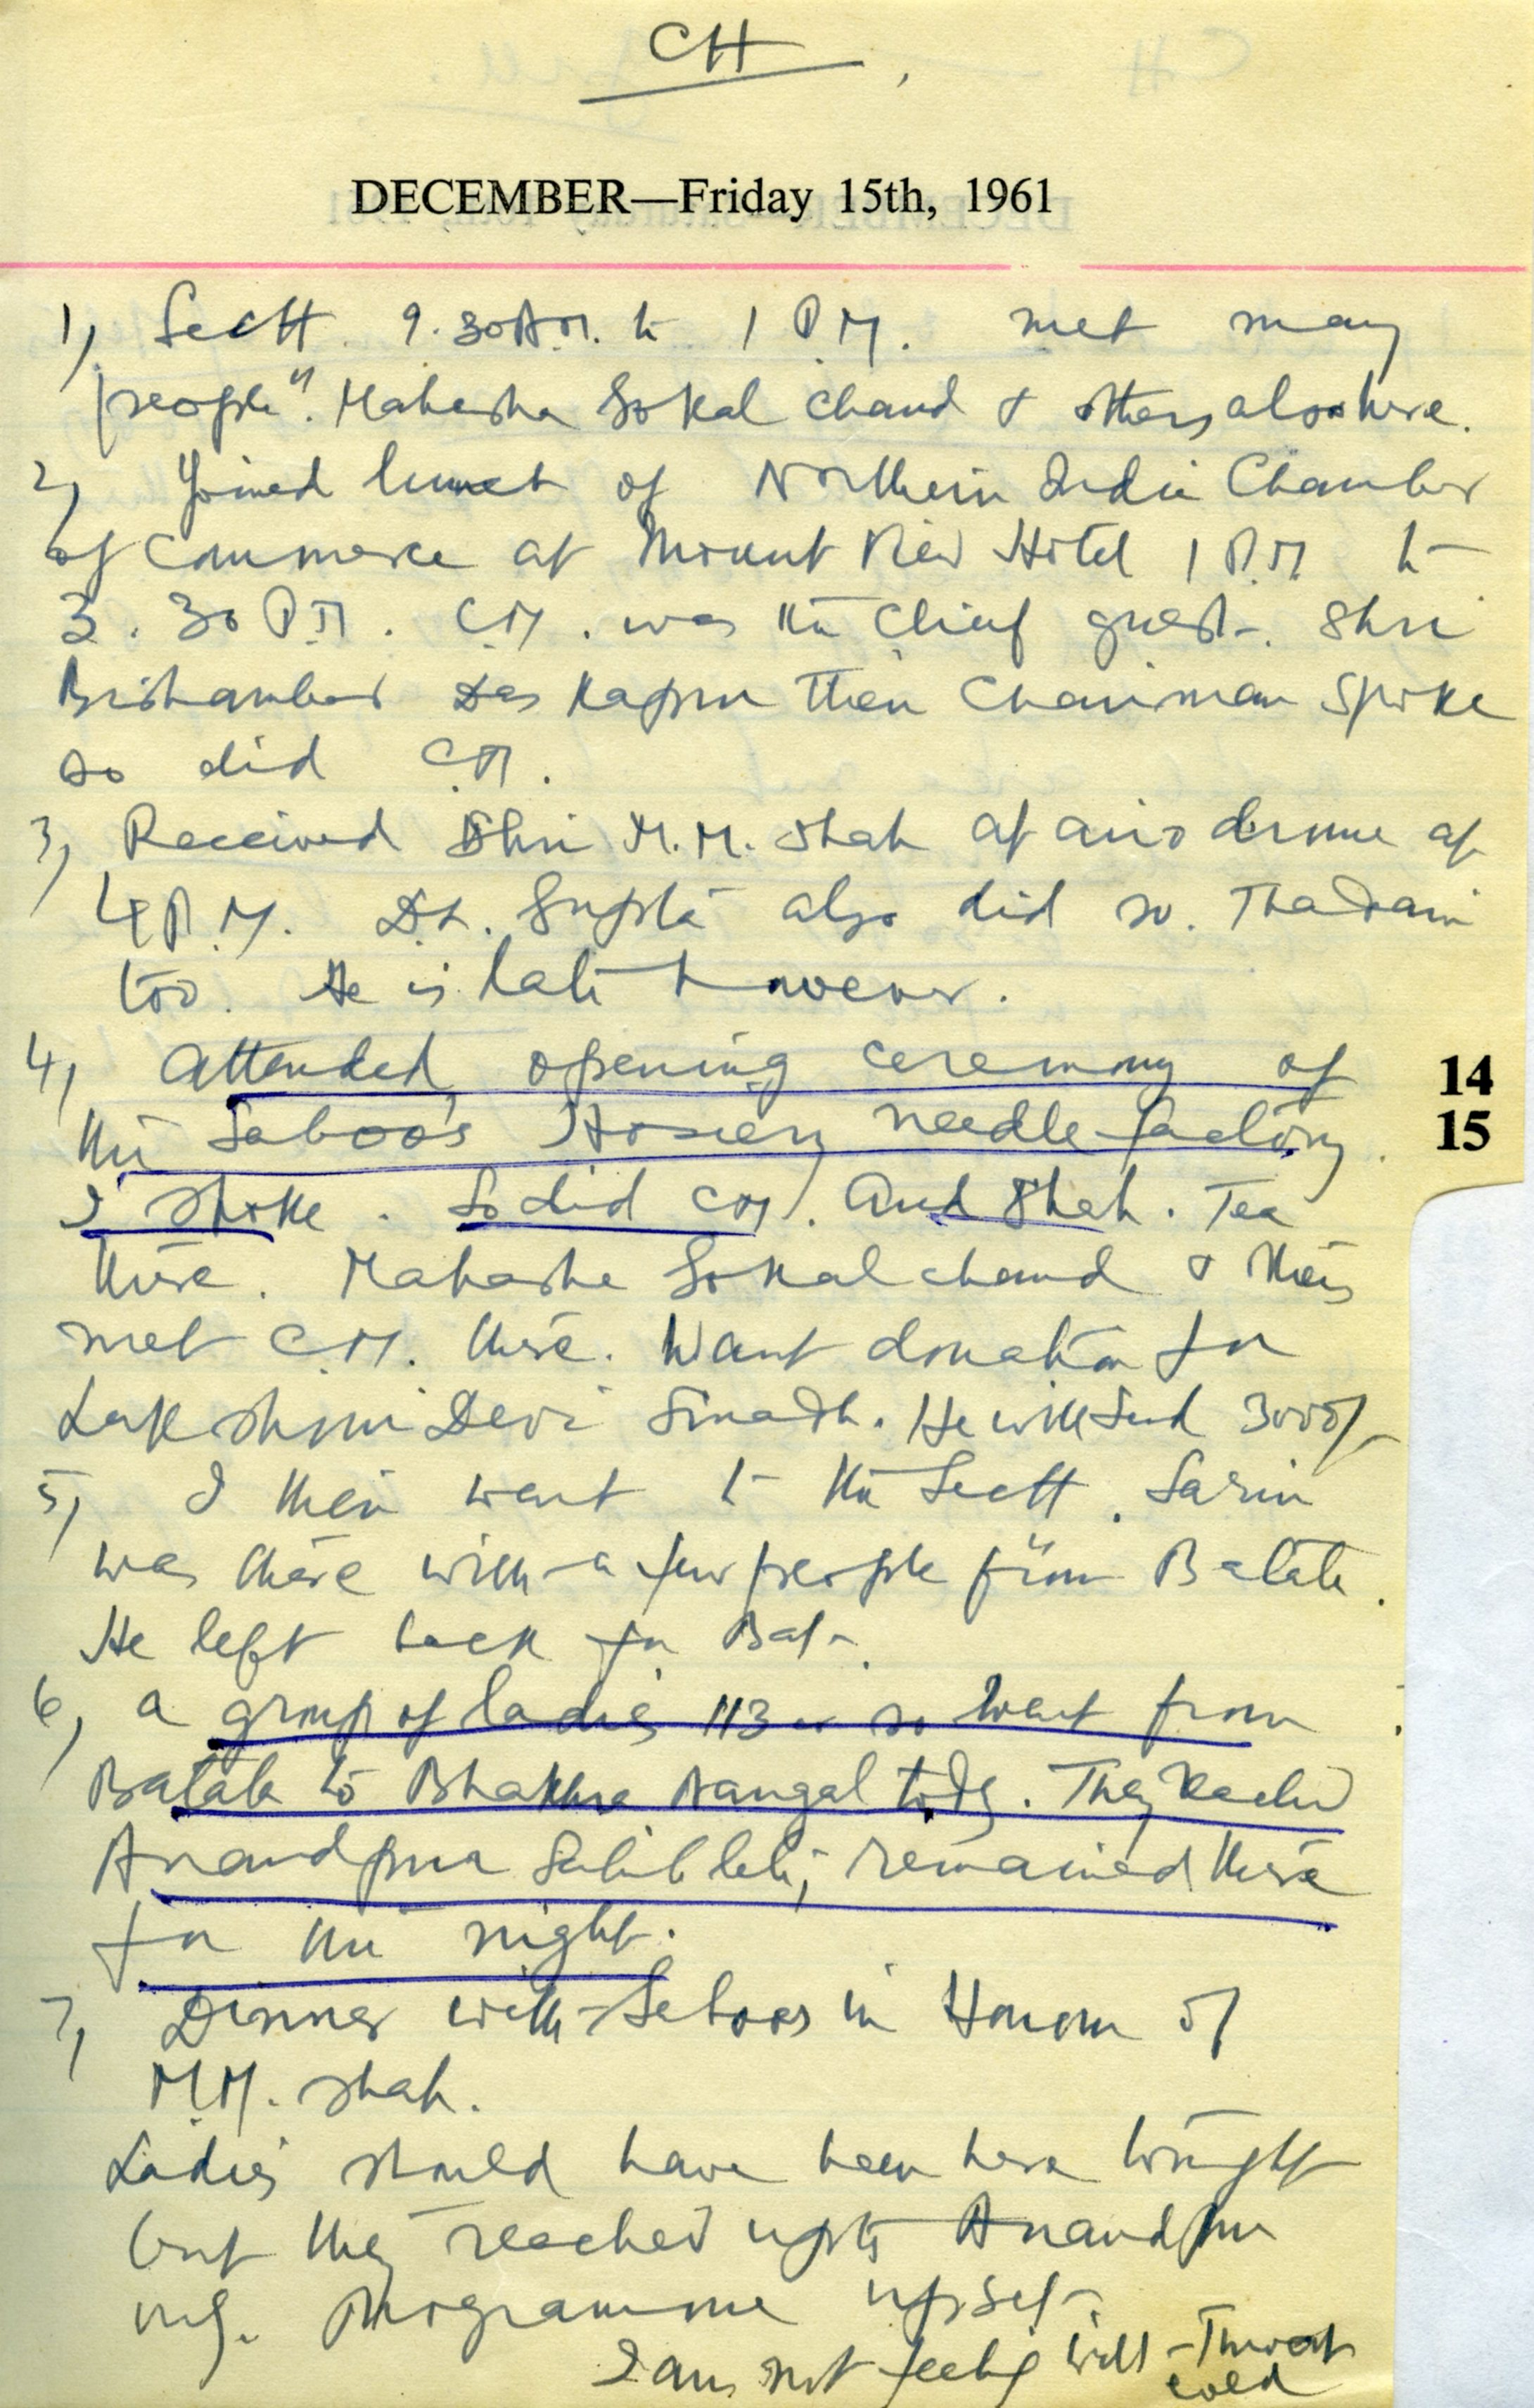 CH
DECEMBER—Friday 15th, 1961
1) Sectt. 9.30 A.M. to 1 P.M. met many
people. Mahasha Gokal Chand & others also here.
2) Joined lunch of Northern India Chamber
of Commerce at Mount View Hotel 1 P.M to
3.30 P.M. C.M. was the Chief guest. Shri
Bishamber Das Kapur their Chairman spoke
so did C.M.
3) Received Shri M.M. Shah at airo drome at
4 P.M. Dr. Gupta also did so. Thadani
too. He is late however.
4) Attended opening ceremony of
14
the Saboo's Hosiery needle factory.
15
I spoke. So did C.M. And Shah. Tea
there. Mahasha Gokal chand &
met C.M. there. Want donation for
Lakshmi Devi He will send 3000/-
5) I then went to the Sectt. Sarin
was there with a few people from Batala.
He left back for Bat.
6) A group of ladies 113 or so went from
Batala to Bhakhra Nangal today. They reached
Anandpur Sahib late, remained there
for the night.
7) Dinner with Saboos in Honour of
M.M. Shah.
Ladies should have been here tonight
but they reached upto Anandpur
only. Programme upset.
I am not feeling well - Throat
cold